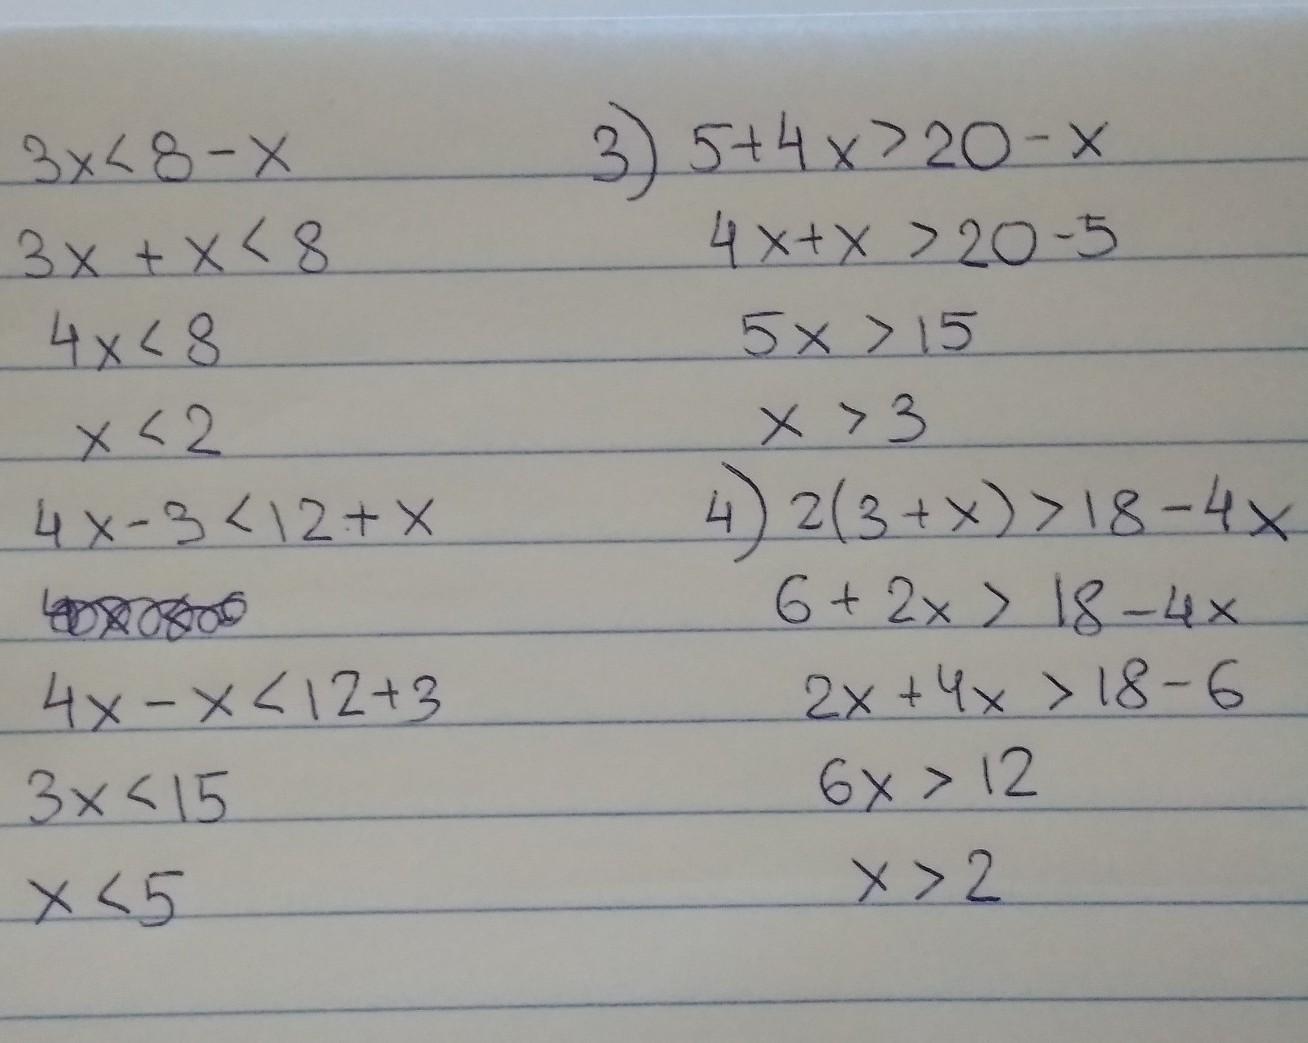 3x<8-x
3x+x<8
4x<8
x<2
4x-3<12+x
4x-x<12+3
3x<15
x<5
3) 5+4x>20-x
4x+x>20-5
5x>15
x>3
4) 2(3+x)>18-4x
6+2x>18-4x
2x+4x>18-6
6x>12
x>2